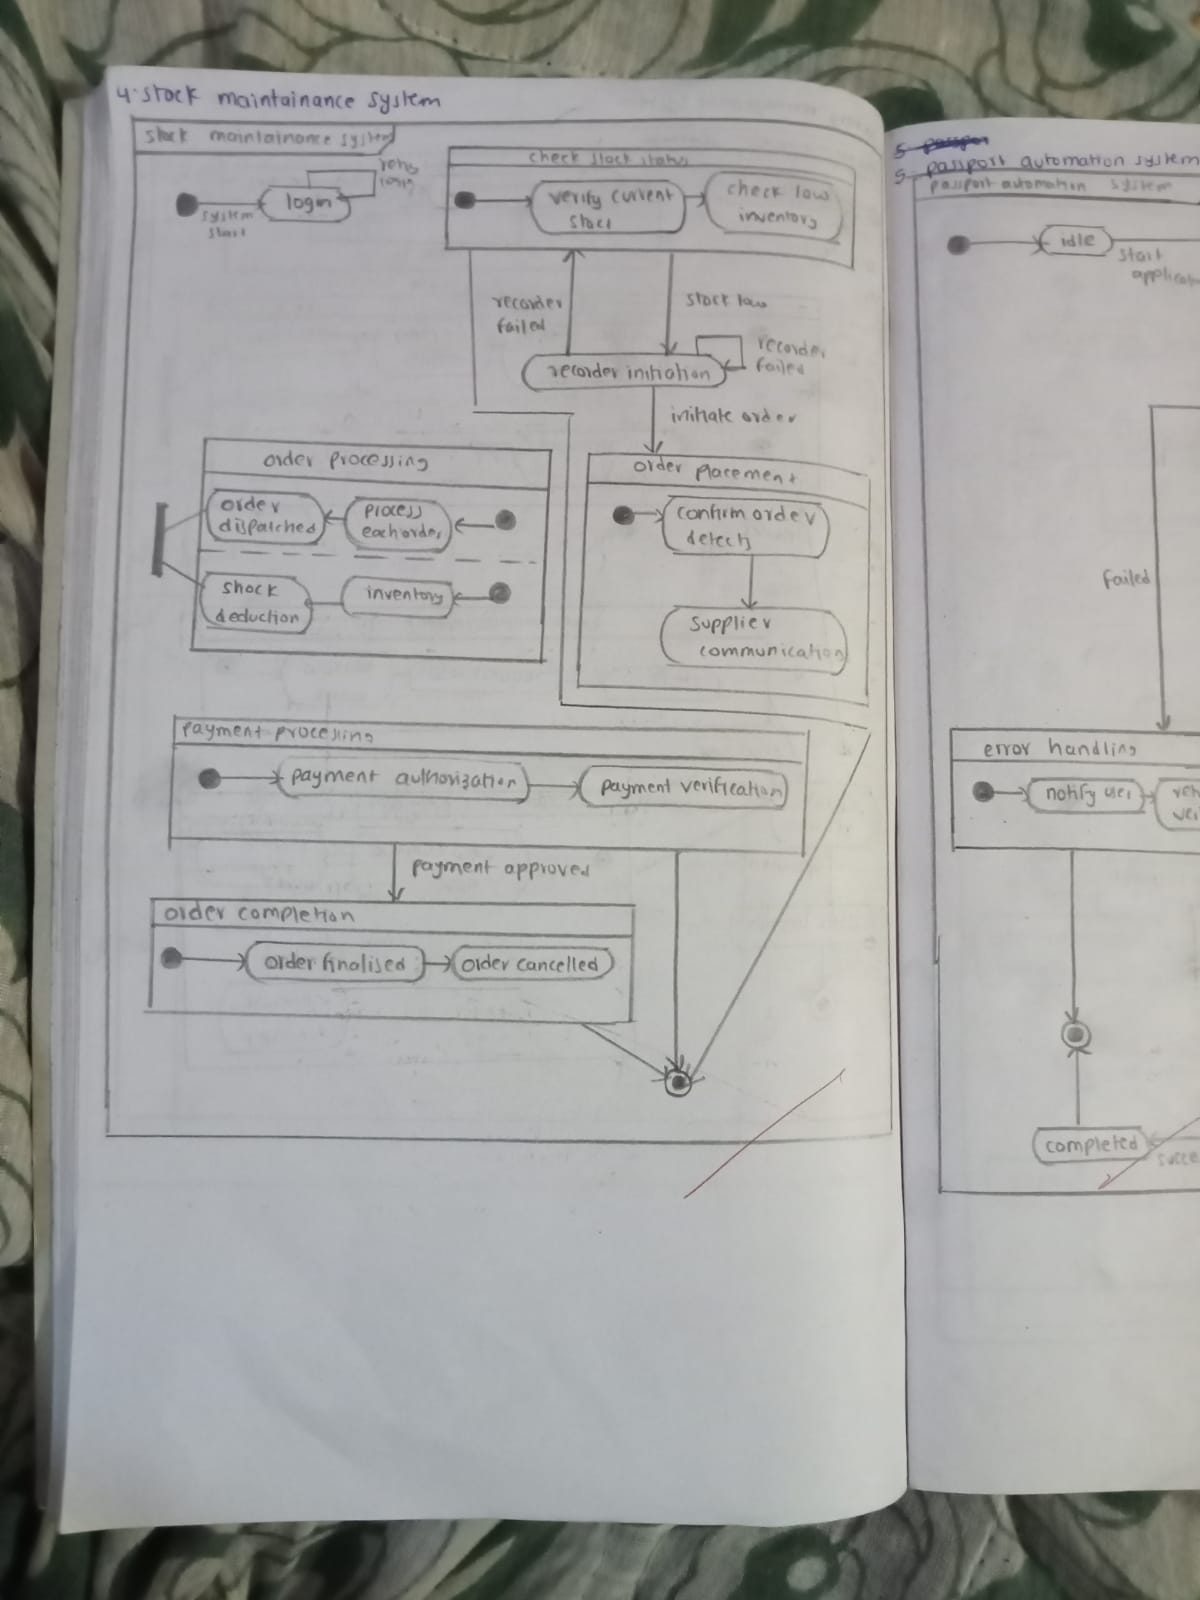 4. stock maintainance system
stock maintainance system
system
start
login
retry
login
check stock status
verify current
stock
check low
inventory
recorder
failed
stock low
recorder initiation
recorder
failed
initiate order
order processing
order
dispatched
process
each order
shock
deduction
inventory
order placement
confirm order
detects
supplier
communication
payment processing
payment authorization
payment verification
payment approved
order completion
order finalised
order cancelled
5. passport automation system
passport automation system
idle
start
applicat
failed
error handling
notify user
completed
succe